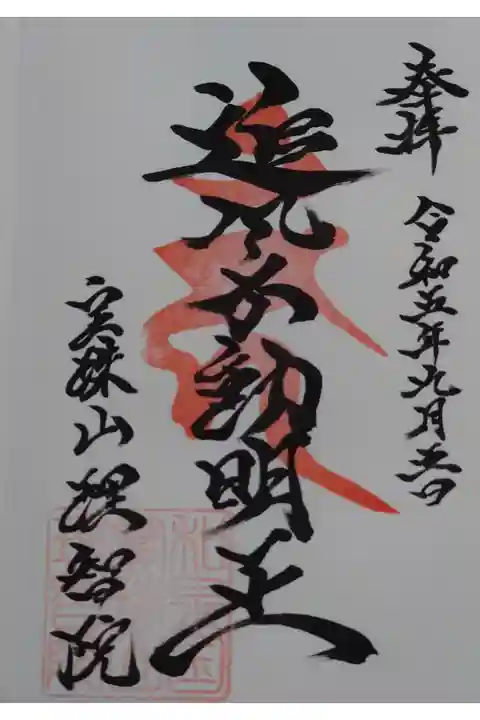 奉拝 令和五年九月
追風不動明王
宝珠山理智院